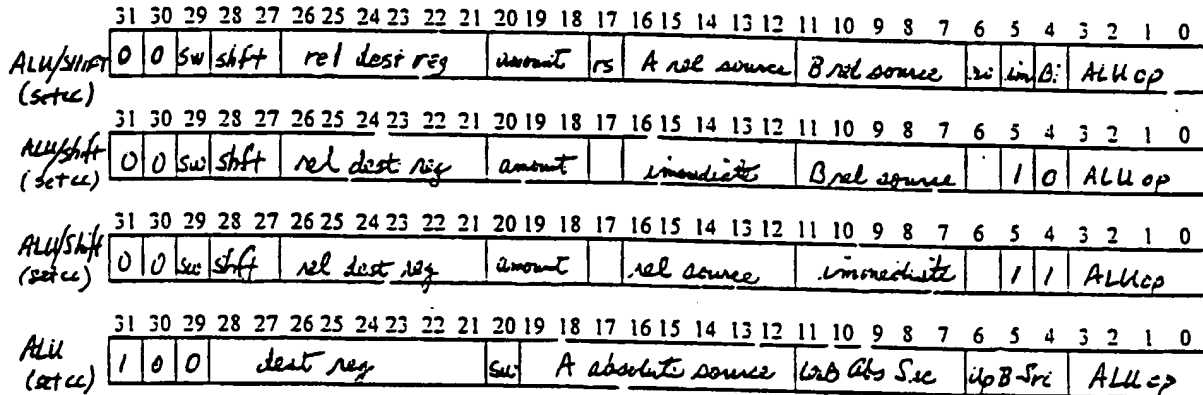 31 30 29 28 27 26 25 24 23 22 21 20 19 18 17 16 15 14 13 12 11 10 9 8 7 6 5 4 3 2 1 0
ALU/SHIFT 0 0 sw shft rel dest reg amount rs A rel source B rel source im Bi ALU op
(setcc)
31 30 29 28 27 26 25 24 23 22 21 20 19 18 17 16 15 14 13 12 11 10 9 8 7 6 5 4 3 2 1 0
ALU/shft 0 0 sw shft rel dest reg amount immediate B rel source 1 0 ALU op
(setcc)
31 30 29 28 27 26 25 24 23 22 21 20 19 18 17 16 15 14 13 12 11 10 9 8 7 6 5 4 3 2 1 0
ALU/Shift 0 0 sw shft rel dest reg amount rel source immediate 1 1 ALU op
(setcc)
31 30 29 28 27 26 25 24 23 22 21 20 19 18 17 16 15 14 13 12 11 10 9 8 7 6 5 4 3 2 1 0
ALU 1 0 0 dest reg sw A absolute source Abs Src B-Src ALU op
(setcc)